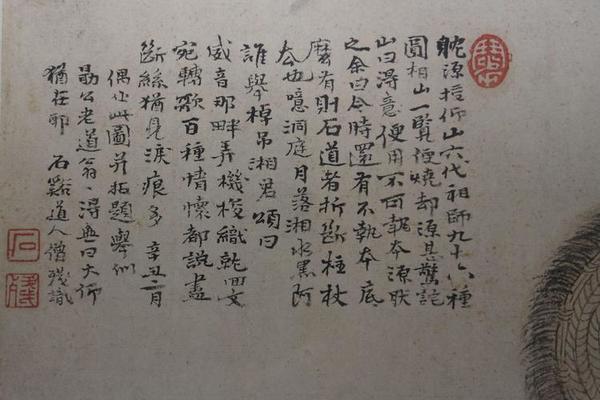 躭源授仰山六代祖師九十六種
圓相山一覽便燒却源甚驚詫
山曰得意便用不可執本源肰
之余曰今時還有不執本底
麼有則石道者折斷拄杖
去也噫洞庭月落湘水黑阿
誰舉棹吊湘君頌曰
威音那畔弄機梭織就回文
宛轉歌百種情懷都說盡
斷絲猶見淚痕多 辛丑二月
偶作此圖并拈題舉似
勗公老道翁、得無曰大仰
猶在耶 石谿道人僧殘識
石